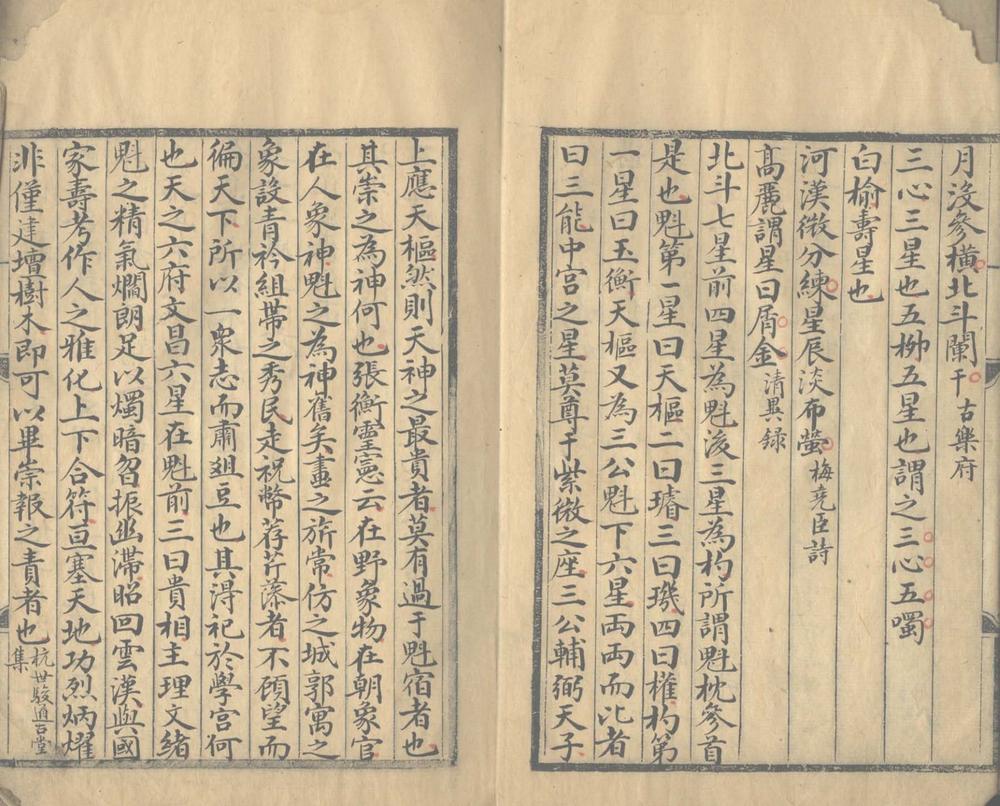 月沒參橫北斗闌干古樂府
三心三星也五栁五星也謂之三心五噣
白榆壽星也
河漢微分練星辰淡布螢梅堯臣詩
高麗謂星曰屑金清異録
北斗七星前四星為魁後三星為杓所謂魁枕參首
是也魁第一星曰天樞二曰璿三曰璣四曰權杓第
一星曰玉衡天樞又為三公魁下六星兩兩而比者
曰三能中宫之星莫尊于紫微之座三公輔弼天子
上應天樞然則天神之最貴者莫有過于魁宿者也
其崇之為神何也張衡靈憲云在野象物在朝象官
在人象神魁之為神舊矣畫之旂常仿之城郭寓之
象設青衿組帶之秀民走祝幣荐芹藻者不顧望而
徧天下所以一衆志而肅俎豆也其淂祀於學宫何
也天之六府文昌六星在魁前三曰貴相主理文緒
魁之精氣爛朗足以燭暗曶振幽滯昭回雲漢與國
家壽考作人之雅化上下合符亘塞天地功烈炳燿
非僅建壇樹木即可以畢崇報之責者也杭世駿道古堂
集